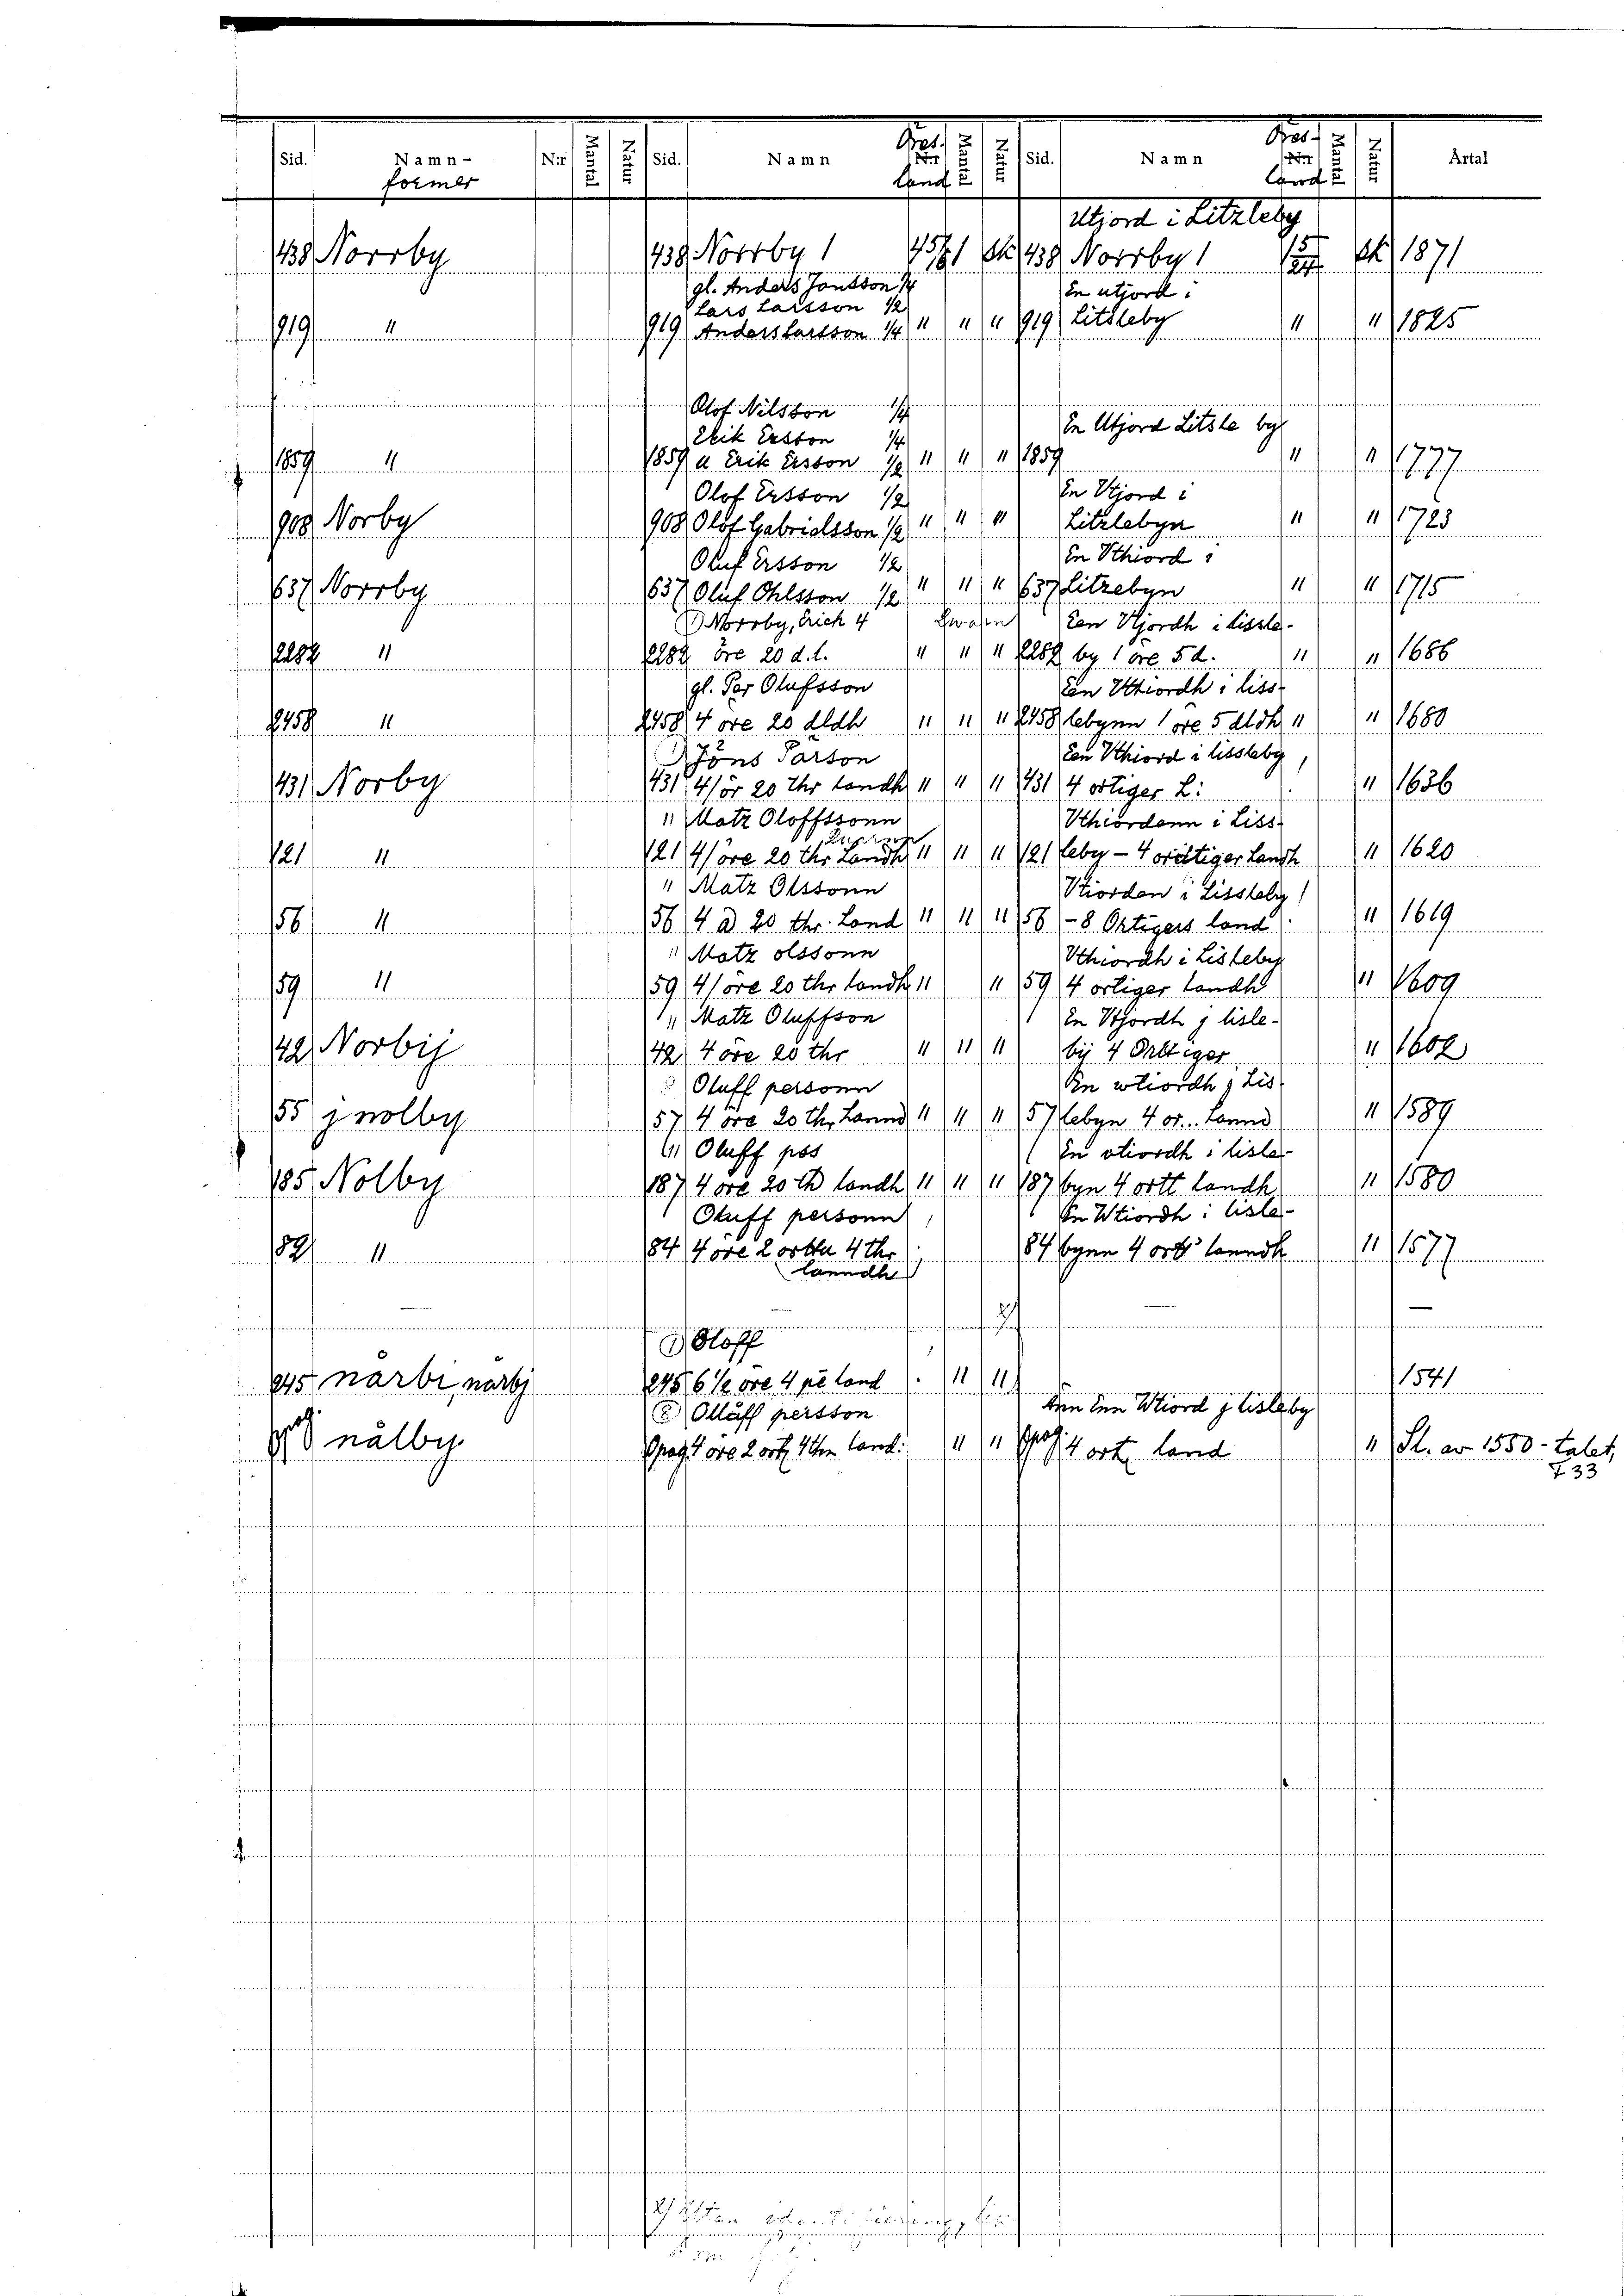 Sid. Namn- Nr Mantal Natur Sid. Namn Nr Mantal Natur Sid. Namn Nr Mantal Natur Årtal
former land land
Utjord i Litzleby
438 Norrby 439 Norrby 1 Sk 438 Norrby 1 Sk 1871
gl. Anders Jansson 1/4 En utjord i
Lars Larsson 1/2
919 " 919 Anders Larsson 1/4 " " " 919 Litsleby " " 1825
Olof Nilsson 1/4
Erik Ersson 1/4 En Utjord Litsle by
1859 " 1859 a Erik Ersson 1/2 " " " 1859 " " 1777
Olof Ersson 1/2 En Utjord i
908 Norby 908 Olof Gabrielsson 1/2 " " " Litzlebyn " " 1723
Oluf Ersson 1/2 En Vthiord i
637 Norrby 637 Oluf Ohlsson 1/2 " " " 637 Litzebyn " " 1715
Norrby, Erich 4 Een Vtjordh i lissle-
2282 " 2282 öre 20 d.l. " " " 2282 by 1 öre 5 d. " " 1686
gl. Per Olufsson Een Vthiordh i liss-
2458 " 2458 4 öre 20 dldh " " " 2458 lebynn 1 öre 5 dldh " " 1680
Jöns Parson Een Vthiord i lissleby
431 Norby 431 4/ör 20 Thr Landh " " " 431 4 örtiger L: " 1636
" Matz Oloffssonn Vthiordann i Liss-
121 " 121 4/öre 20 thr Landh " " " 121 leby - 4 Landh " 1620
" Matz Olssonn Vtiorden i Lissleby
56 " 56 4 20 thr. Land " " " 56 - 8 Örtigers land " 1619
" Matz olssonn Vthiordh i Lisleby
59 " 59 4/öre 20 thr landh " " 59 4 örtiger Landh " 1609
" Matz Oluffson En Vtjordh j lisle-
42 Norbij 42 4 öre 20 thr " " " bij 4 " 1602
Oluff personn En wtiordh j Lis
55 j nolby 57 4 öre 20 thr Lannd " " " 57 lebyn 4 or... Lannd " 1589
" Oluff pss En vtiordh i lisle-
185 Nolby 187 4 öre 20 th landh " " " 187 byn 4 ortt landh " 1580
Oluff personn En Wtiordh i lisle-
82 " 84 4 öre 2 4 thr 84 bynn 4 lanndh " 1577
lanndh
Oloff
245 närbi, närbj 245 6 1/2 öre 4 pe land " " 1541
Olläff persson Wtiord j lisleby
nålby 4 öre 2 ort land: " " 4 ort land " Sl. av 1550-talet,
F 33